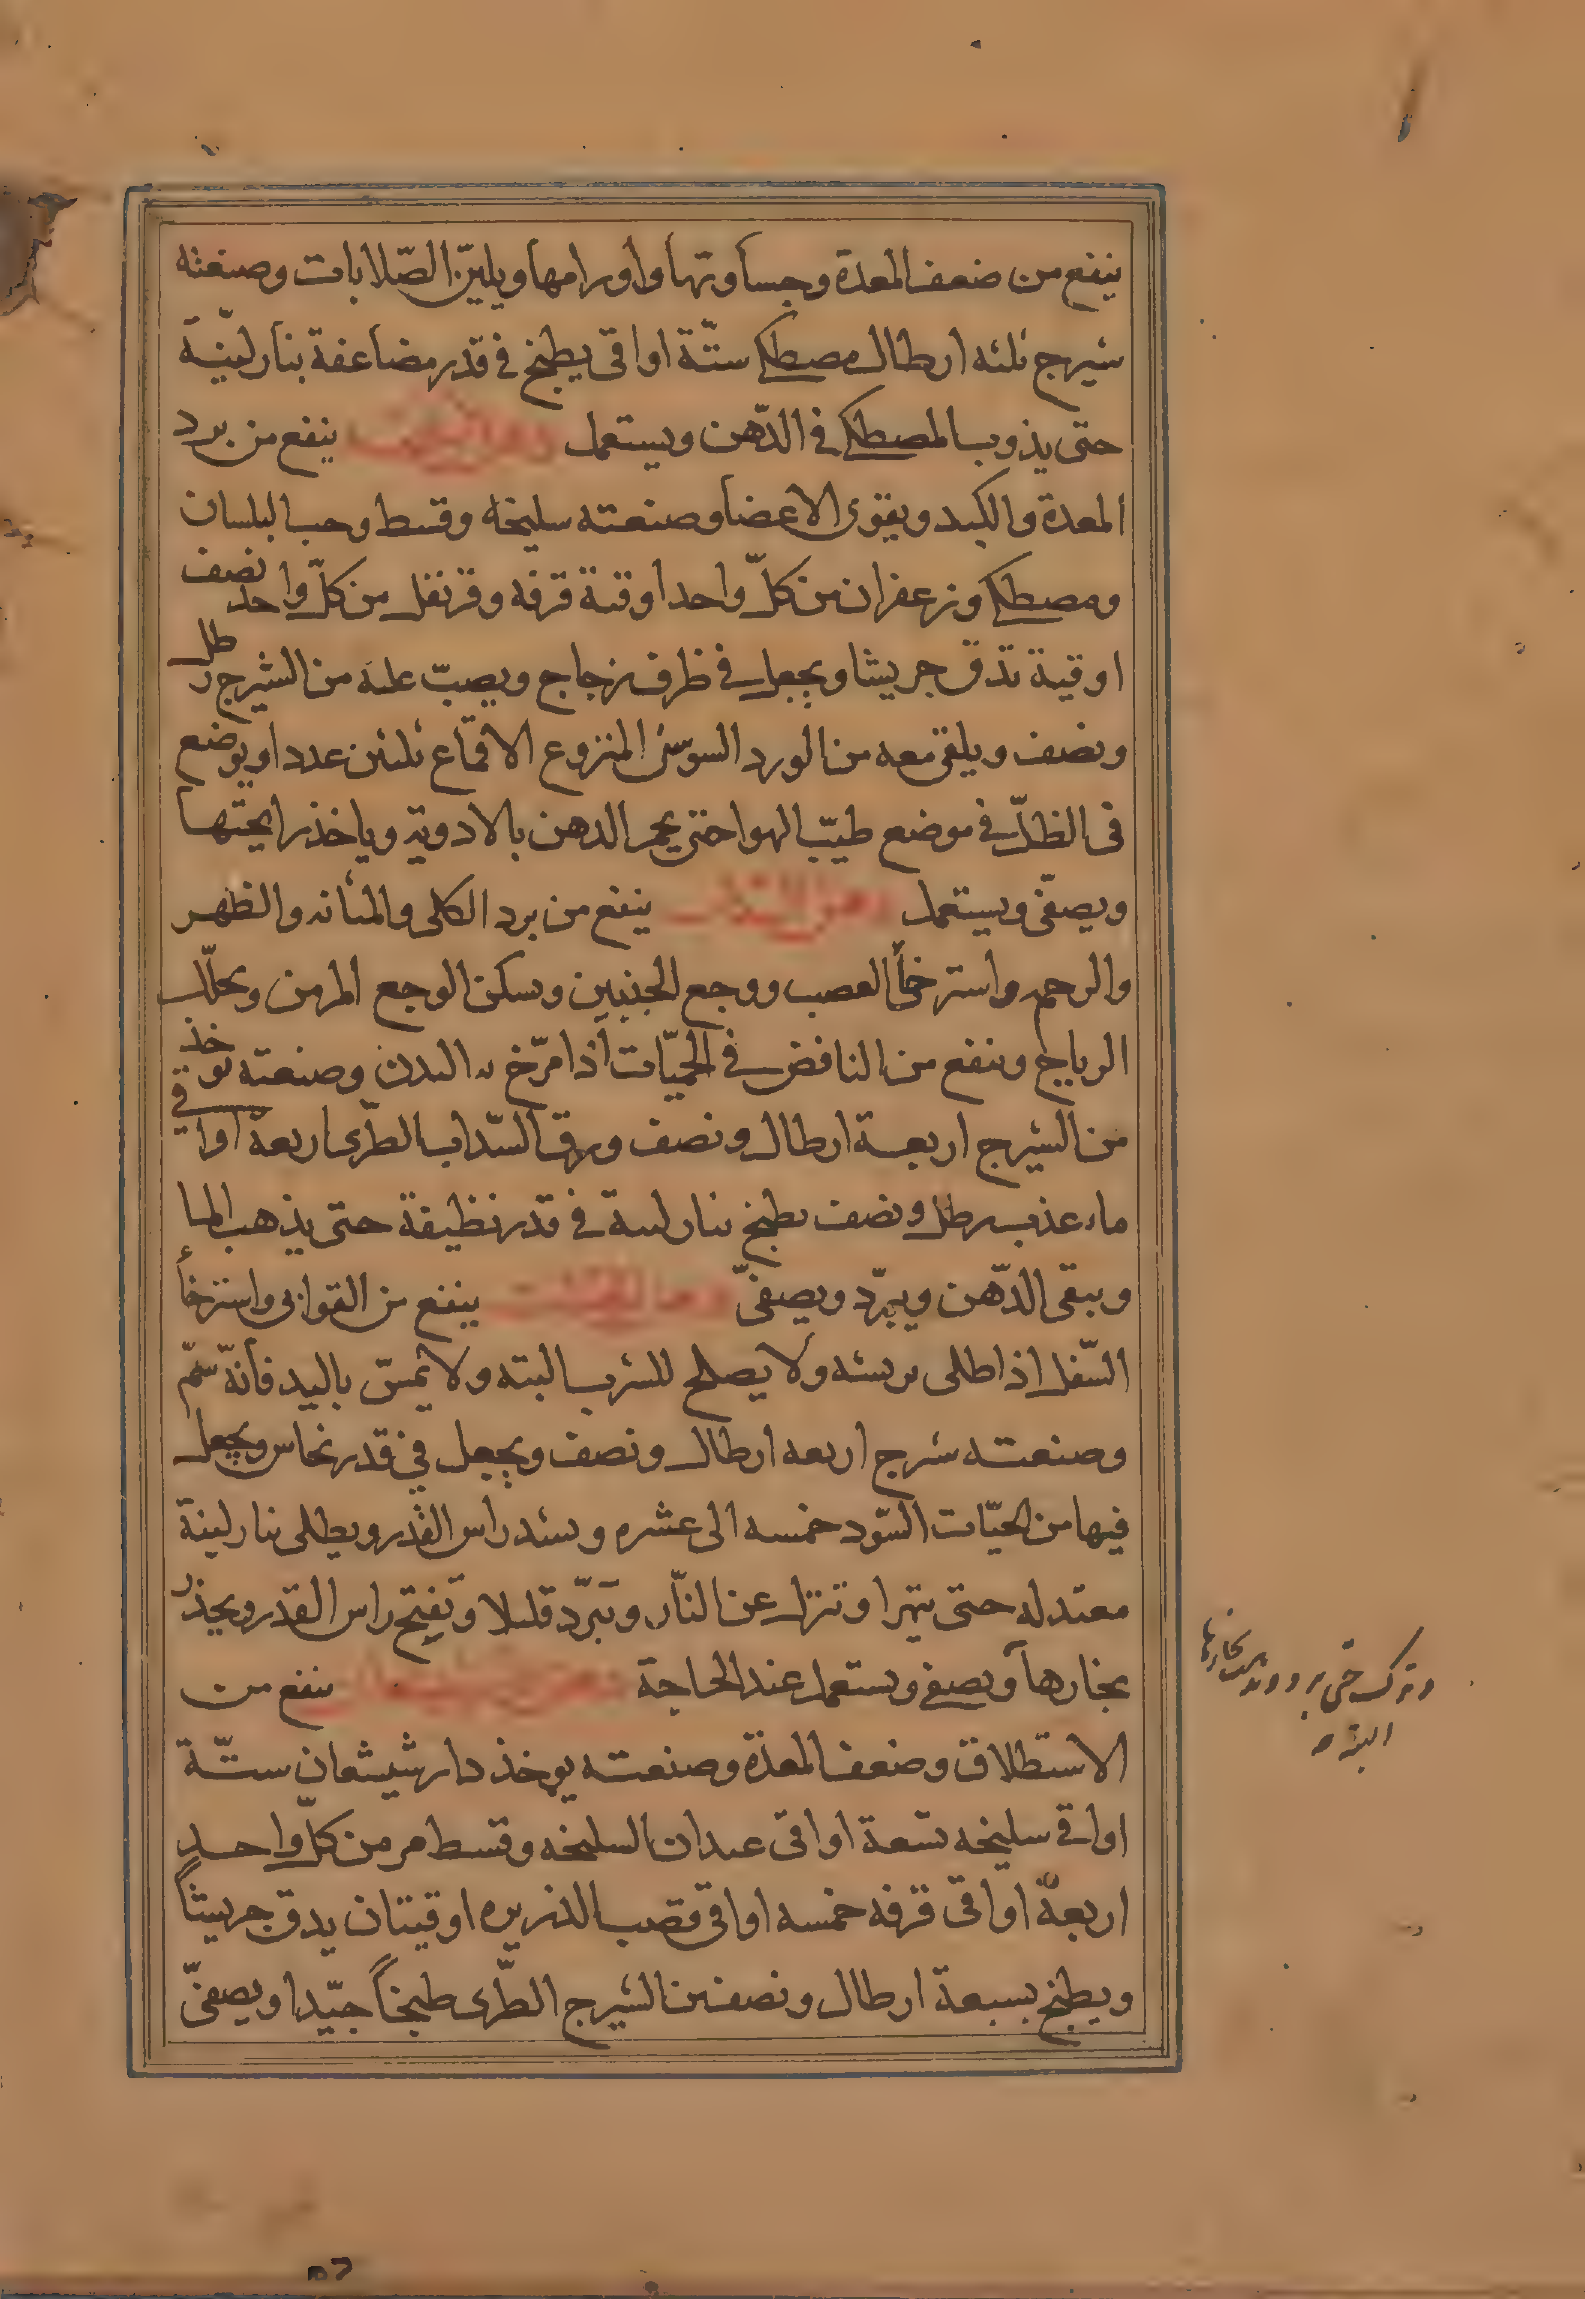 ينفع من ضعف المعدة وجساوتها واورامها ويليّن الصّلابات وصنعته
شيرج ثلثه ارطال مصطكى ستّة اواقى يطبخ فى قدر مضاعفة بنار ليّنة
حتى يذوب المصطكى فى الدّهن ويستعمل ينفع من برد
المعدة والكبد ويقوى الاعضا وصنعته سليخه وقسط وحب البلسان
ومصطكى وزعفران من كلّ واحد اوقية قرفه وقرنفل من كلّ واحد نصف
اوقية تدق جريشا ويجعل فى ظرف زجاج ويصبّ عليه من الشيرج رطل
ونصف ويلقى معه من الورد السوسنى المنزوع الاقماع ثلثين عددا ويوضع
فى الظلّ فى موضع طيّب الهوا حتى يحمر الدهن بالادوية وياخذ رايحتها
ويصفّى ويستعمل دهن السذاب ينفع من برد الكلى والمثانه والظهر
والرحم واسترخأ العصب ووجع الجنبين ويسكن الوجع المزمن ويحلّل
الرياح وينفع من النافض فى الحميّات اذا مرّخ به البدن وصنعته يوخذ
من الشيرج اربعة ارطال ونصف ورق السّداب الطّرى اربعة اواقى
ماء عذب رطل ونصف يطبخ بنار لينة فى قدر نظيفة حتى يذهب الما
ويبقى الدّهن ويبرّد ويصفىّ دهن الحيات ينفع من القوابى واسترخأ
السّفل اذا طلى بريشه ولا يصلح للشرب البته ولا يمسّ باليد فأنّه سمّ
وصنعته شيرج اربعه ارطال ونصف ويجعل فى قدر نحاس ويجعل
فيها من الحيّات السّود خمسه الى عشره ويسد راس القدر ويطلى بنار لينة
معتدله حتى يتهرا وتنزل عن النّار وتبرّد قليلا وتفتح راس القدر ويحذر
بخارها ويصفى ويستعمل عند الحاجة ينفع من
الاستطلاق وضعف المعدة وصنعته يوخذ دارشيشعان ستّة
اواقى سليخه تسعة اواقى عيدان السليخه وقسط مر من كلّ واحد
اربعة اواقى قرفه خمسه اواقى قصب الذريره اوقيتان يدق جريشاً
ويطبخ بسبعة ارطال ونصف من الشيرج الطّرى طبخاً جيّدا ويصفىّ